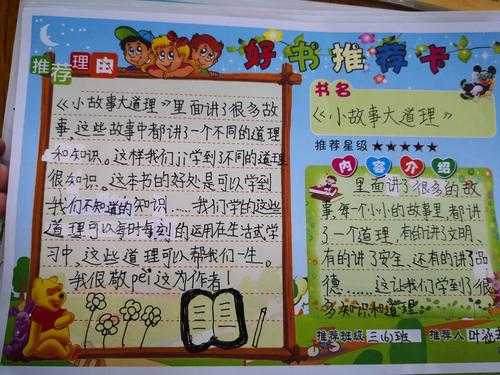 好书推荐卡
推荐理由
《小故事大道理》里面讲了很多故
事,这些故事中都讲了一个不同的道理
和知识。这样我们jj学到了不同的道理
很知识。这本书的好处是可以学到
我们不知道的知识……我们学的这些
道理可以每时每刻的运用在生活式学
习中、这些道理可以帮我们一生。
我很敬pei这为作者!
书名
《小故事大道理》
推荐星级★★★★★
内容介绍
里面讲了很多的故
事,每一个小小的故事里,都讲
了一个道理,有的讲了文明、
有的讲了安全、还有的讲了品
德……这让我们学到了很
多知识和道理。
推荐班级 三(6)班 推荐人 叶